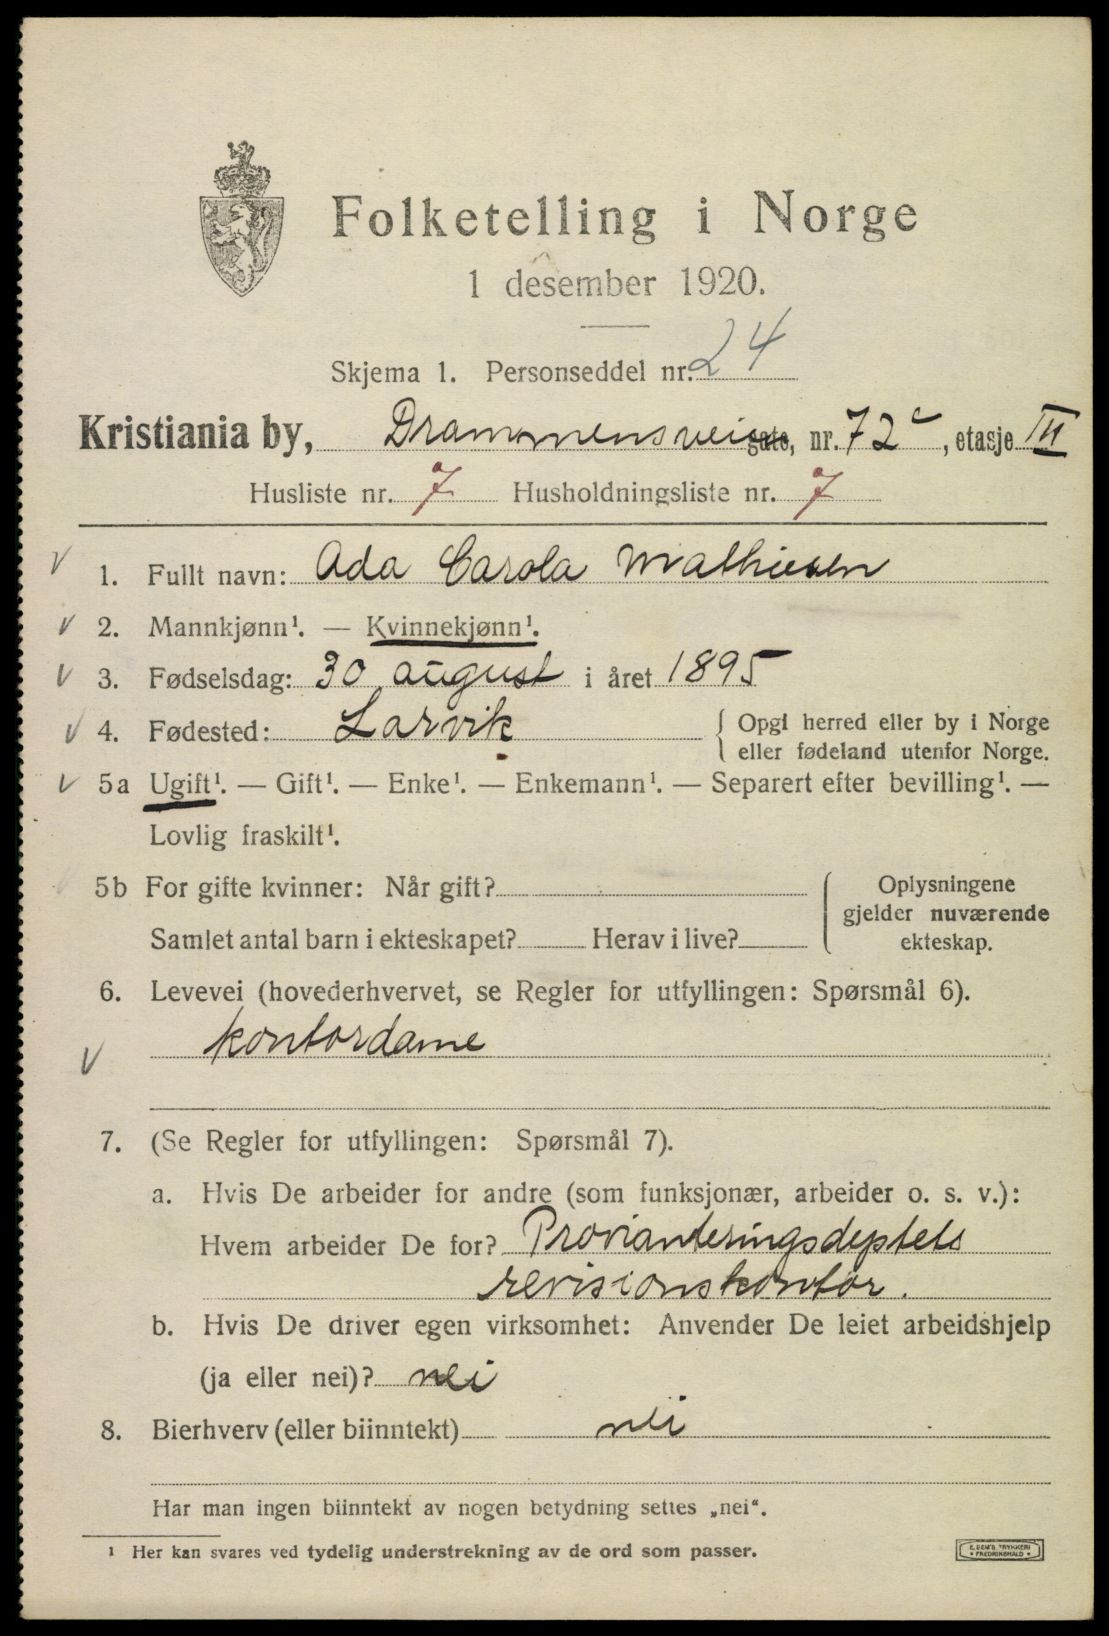 Folketelling i Norge
1 desember 1920.
Skjema 1. Personseddel nr. 24
Kristiania by, Drammensvei gate, nr. 72c, etasje III
Husliste nr. 7 Husholdningsliste nr. 7
1. Fullt navn: Ada Carola Mathiesen
2. Mannkjønn¹. — Kvinnekjønn¹.
3. Fødselsdag: 30 august i året 1895
4. Fødested: Larvik { Opgi herred eller by i Norge
eller fødeland utenfor Norge.
5a Ugift¹. — Gift¹. — Enke¹. — Enkemann¹. — Separert efter bevilling¹. —
Lovlig fraskilt¹.
5b For gifte kvinner: Når gift? { Oplysningene
gjelder nuværende
Samlet antal barn i ekteskapet? Herav i live? ekteskap.
6. Levevei (hovederhvervet, se Regler for utfyllingen: Spørsmål 6).
kontordame
7. (Se Regler for utfyllingen: Spørsmål 7).
a. Hvis De arbeider for andre (som funksjonær, arbeider o. s. v.):
Hvem arbeider De for? Provianteringsdeptets
revisionskontor.
b. Hvis De driver egen virksomhet: Anvender De leiet arbeidshjelp
(ja eller nei)? nei
8. Bierhverv (eller biinntekt) nei
Har man ingen biinntekt av nogen betydning settes „nei“.
¹ Her kan svares ved tydelig understrekning av de ord som passer.
E. SEM'S TRYKKERI
FREDRIKSHALD